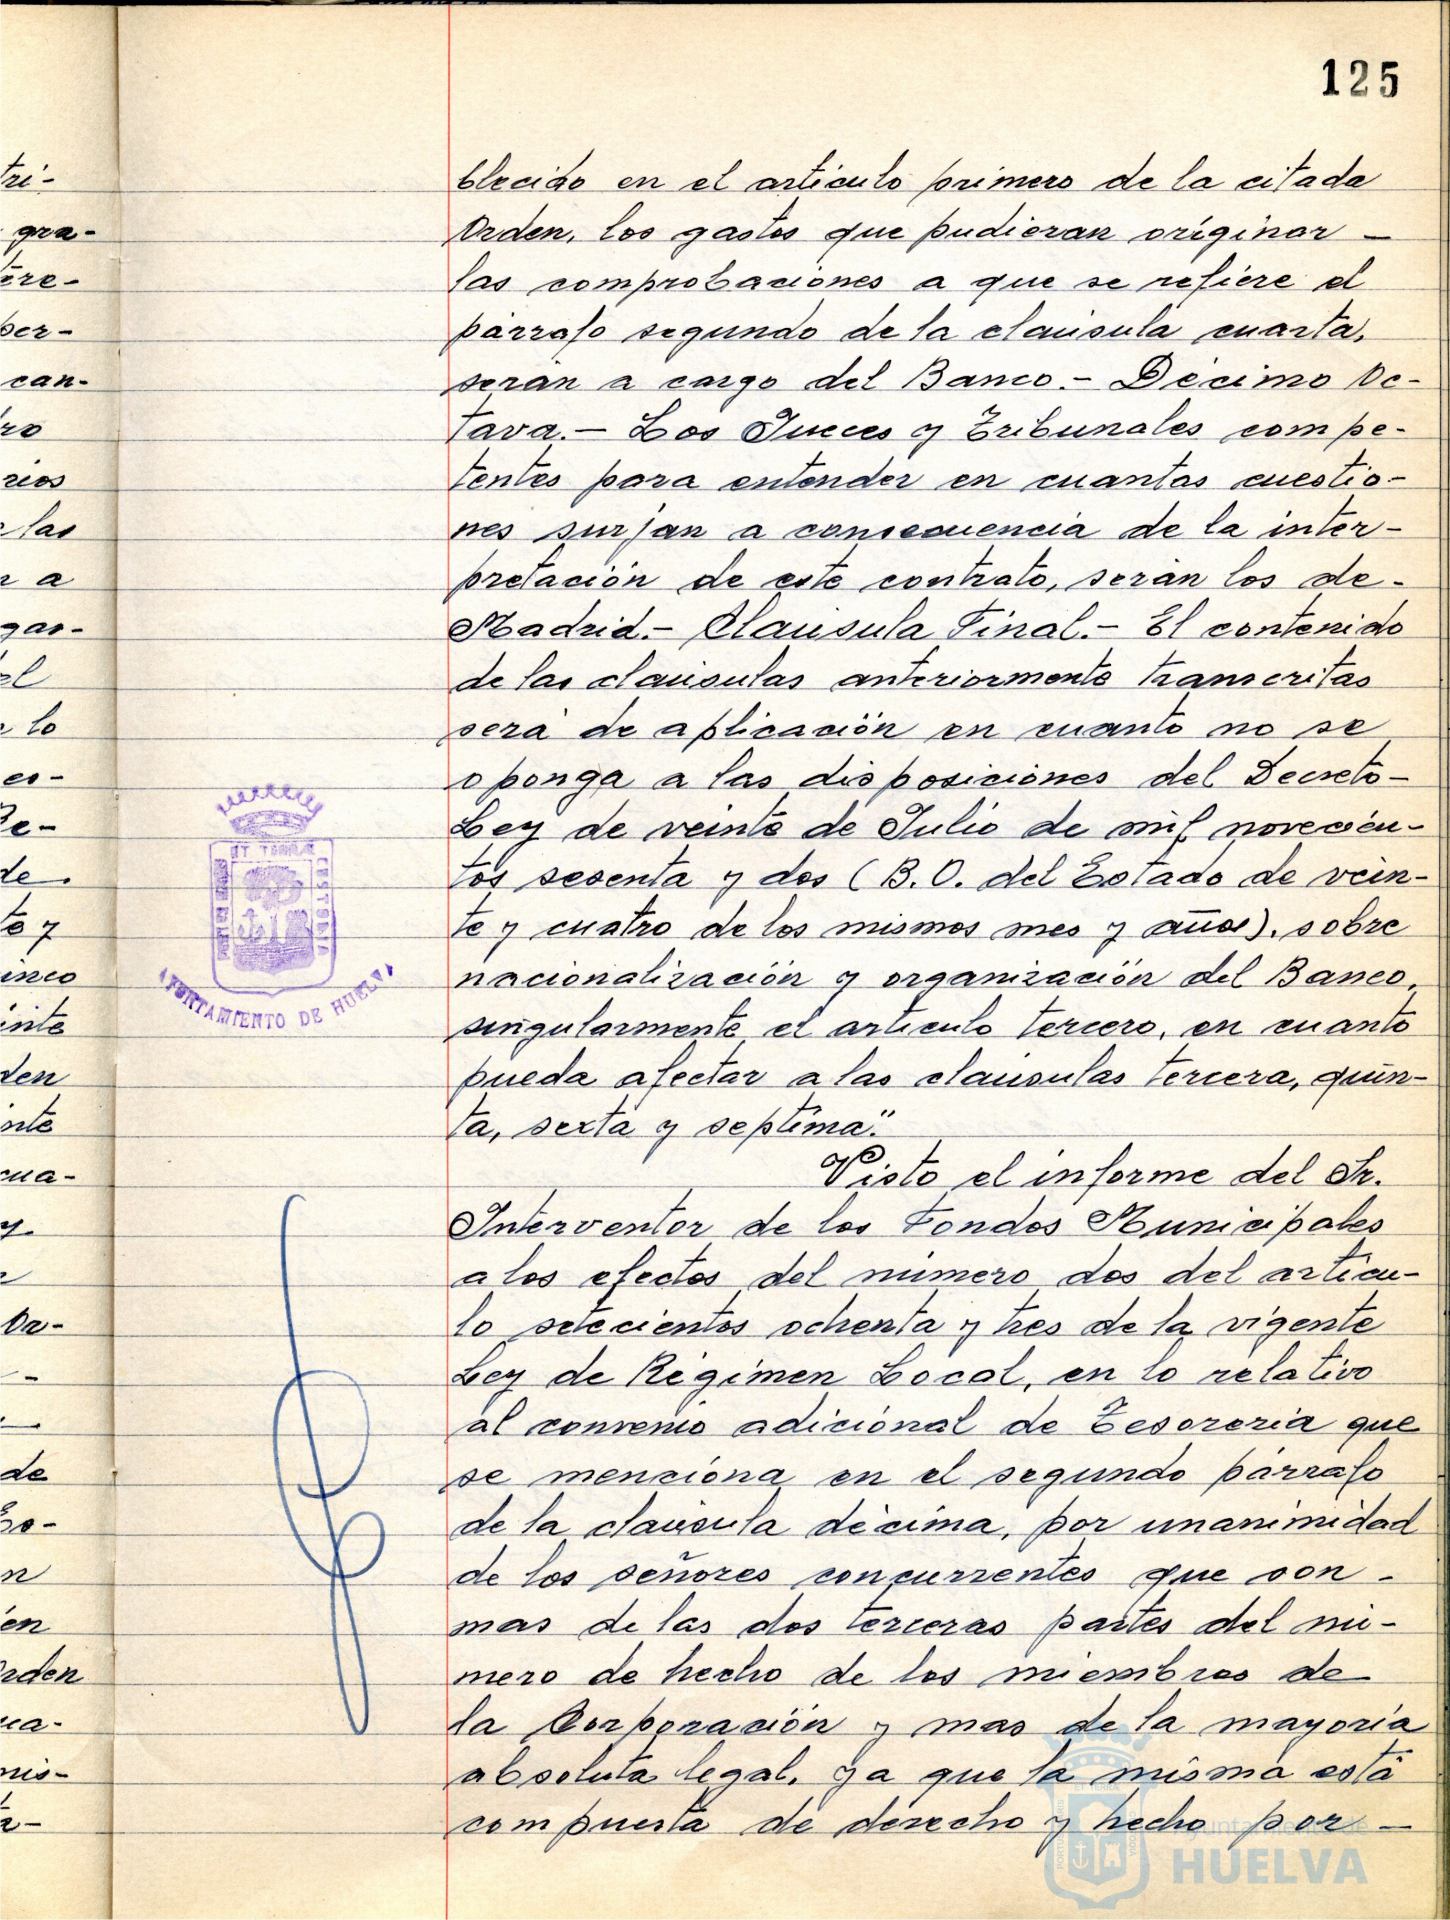 125
blecido en el artículo primero de la citada
Orden, los gastos que pudieran originar -
las comprobaciones a que se refiere el
párrafo segundo de la claúsula cuarta,
serán a cargo del Banco.- Décimo Oc-
tava.- Los Jueces y Tribunales compe-
tentes para entender en cuantas cuestio-
nes surjan a consecuencia de la inter-
pretación de este contrato, serán los de-
Madrid.- Claúsula Final.- El contenido
de las claúsulas anteriormente transcritas
será de aplicación en cuanto no se
oponga a las disposiciones del Decreto-
Ley de veinte de Julio de mil novecien-
tos sesenta y dos (B.O. del Estado de vein-
te y cuatro de los mismos mes y años), sobre
nacionalización y organización del Banco,
singularmente el artículo tercero, en cuanto
pueda afectar a las claúsulas tercera, quin-
ta, sexta y septima."
Visto el informe del Sr.
Interventor de los Fondos Municipales
a los efectos del número dos del artícu-
lo setecientos ochenta y tres de la vigente
Ley de Régimen Local, en lo relativo
al convenio adicional de Tesorería que
se menciona en el segundo párrafo
de la claúsula décima, por unanimidad
de los señores concurrentes que son -
mas de las dos terceras partes del nú-
mero de hecho de los miembros de
la Corporación y mas de la mayoría
absoluta legal, ya que la misma está
compuesta de derecho y hecho por -
tri-
gra-
tere-
per-
can-
ro
rios
las
a
gas-
el
lo
es-
de.
te y
inco
inte
den
inte
cua-
y.
Or-
-
de
Es-
n
en
rden
ua-
mis-
AYUNTAMIENTO DE HUELVA
Ayuntamiento de
HUELVA